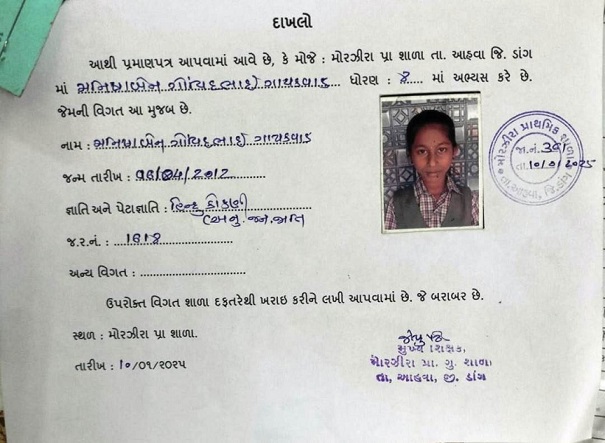 દાખલો
આથી પ્રમાણપત્ર આપવામાં આવે છે, કે મોજે : મોરઝીરા પ્રા શાળા તા. આહવા જિ. ડાંગ
માં મનિષાબેન ગોવિંદભાઈ ગાયકવાડ ધોરણ : ૭ માં અભ્યસ કરે છે.
જેમની વિગત આ મુજબ છે.
નામ : મનિષાબેન ગોવિંદભાઈ ગાયકવાડ
જન્મ તારીખ : 16/04/2012
જ્ઞાતિ અને પેટાજ્ઞાતિ : હિન્દુ કોકણી
(અનુ. જન. જાત
જ.ર.નં. : 1618
અન્ય વિગત :
ઉપરોક્ત વિગત શાળા દફતરેથી ખરાઇ કરીને લખી આપવામાં છે. જે બરાબર છે.
સ્થળ : મોરઝીરા પ્રા શાળા.
તારીખ : ૧૦/૦૧/૨૦૨૫
મુખ્ય શિક્ષક,
મોરઝીરા પ્રા. ગુ. શાળા
તા, આહવા, જી. ડાંગ
મોરઝીરા પ્રાથમિક શાળા
જા.નં. 391
તા. 10/01/2025
તા. આહવા, જિ. ડાંગ